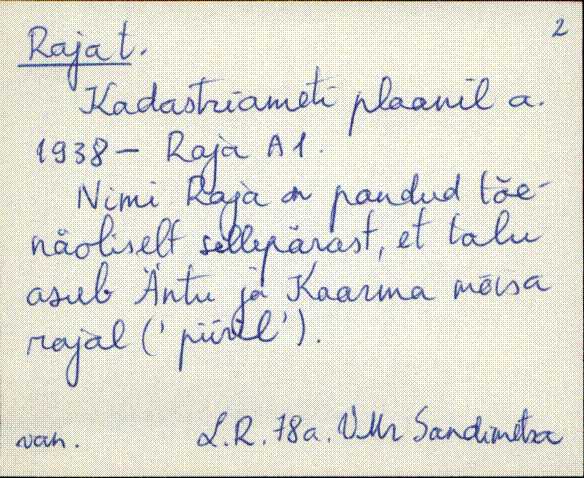 2
Raja t.
Kadastriameti plaanil a.
1938 – Raja A 1.
Nimi Raja on pandud tõe-
näoliselt sellepärast, et talu
asub Äntu ja Kaarma mõisa
rajal ('piiril').
van. L.R. 78a. VMr Sandimetsa